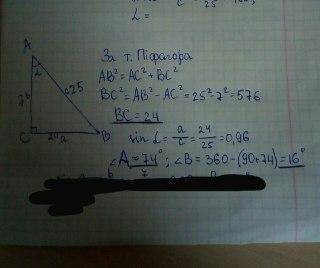 L =
A
L
c25
7b
C
24a
B
За т. Піфагора
AB²=AC²+BC²
BC²=AB²-AC²=25²-7²=576
BC=24
sin L = a/c = 24/25 = 0,96
∠A≈74°; ∠B=360-(90+74)=16°